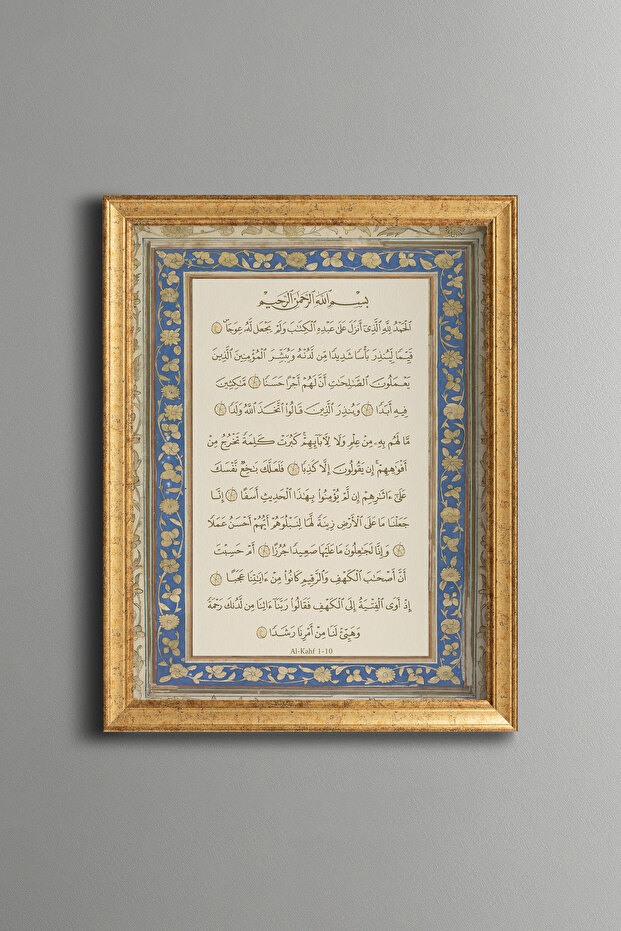 بِسْمِ اللَّهِ الرَّحْمَٰنِ الرَّحِيمِ
الْحَمْدُ لِلَّهِ الَّذِي أَنزَلَ عَلَىٰ عَبْدِهِ الْكِتَابَ وَلَمْ يَجْعَل لَّهُ عِوَجًا
قَيِّمًا لِّيُنذِرَ بَأْسًا شَدِيدًا مِّن لَّدُنْهُ وَيُبَشِّرَ الْمُؤْمِنِينَ الَّذِينَ
يَعْمَلُونَ الصَّالِحَاتِ أَنَّ لَهُمْ أَجْرًا حَسَنًا مَّٰكِثِينَ
فِيهِ أَبَدًا وَيُنذِرَ الَّذِينَ قَالُوا اتَّخَذَ اللَّهُ وَلَدًا
مَّا لَهُم بِهِ مِنْ عِلْمٍ وَلَا لِآبَائِهِمْ كَبُرَتْ كَلِمَةً تَخْرُجُ مِنْ
أَفْوَاهِهِمْ إِن يَقُولُونَ إِلَّا كَذِبًا فَلَعَلَّكَ بَاخِعٌ نَّفْسَكَ
عَلَىٰ آثَارِهِمْ إِن لَّمْ يُؤْمِنُوا بِهَٰذَا الْحَدِيثِ أَسَفًا إِنَّا
جَعَلْنَا مَا عَلَى الْأَرْضِ زِينَةً لَّهَا لِنَبْلُوَهُمْ أَيُّهُمْ أَحْسَنُ عَمَلًا
وَإِنَّا لَجَاعِلُونَ مَا عَلَيْهَا صَعِيدًا جُرُزًا أَمْ حَسِبْتَ
أَنَّ أَصْحَابَ الْكَهْفِ وَالرَّقِيمِ كَانُوا مِنْ آيَاتِنَا عَجَبًا
إِذْ أَوَى الْفِتْيَةُ إِلَى الْكَهْفِ فَقَالُوا رَبَّنَا آتِنَا مِن لَّدُنكَ رَحْمَةً
وَهَيِّئْ لَنَا مِنْ أَمْرِنَا رَشَدًا
Al-Kahf 1-10